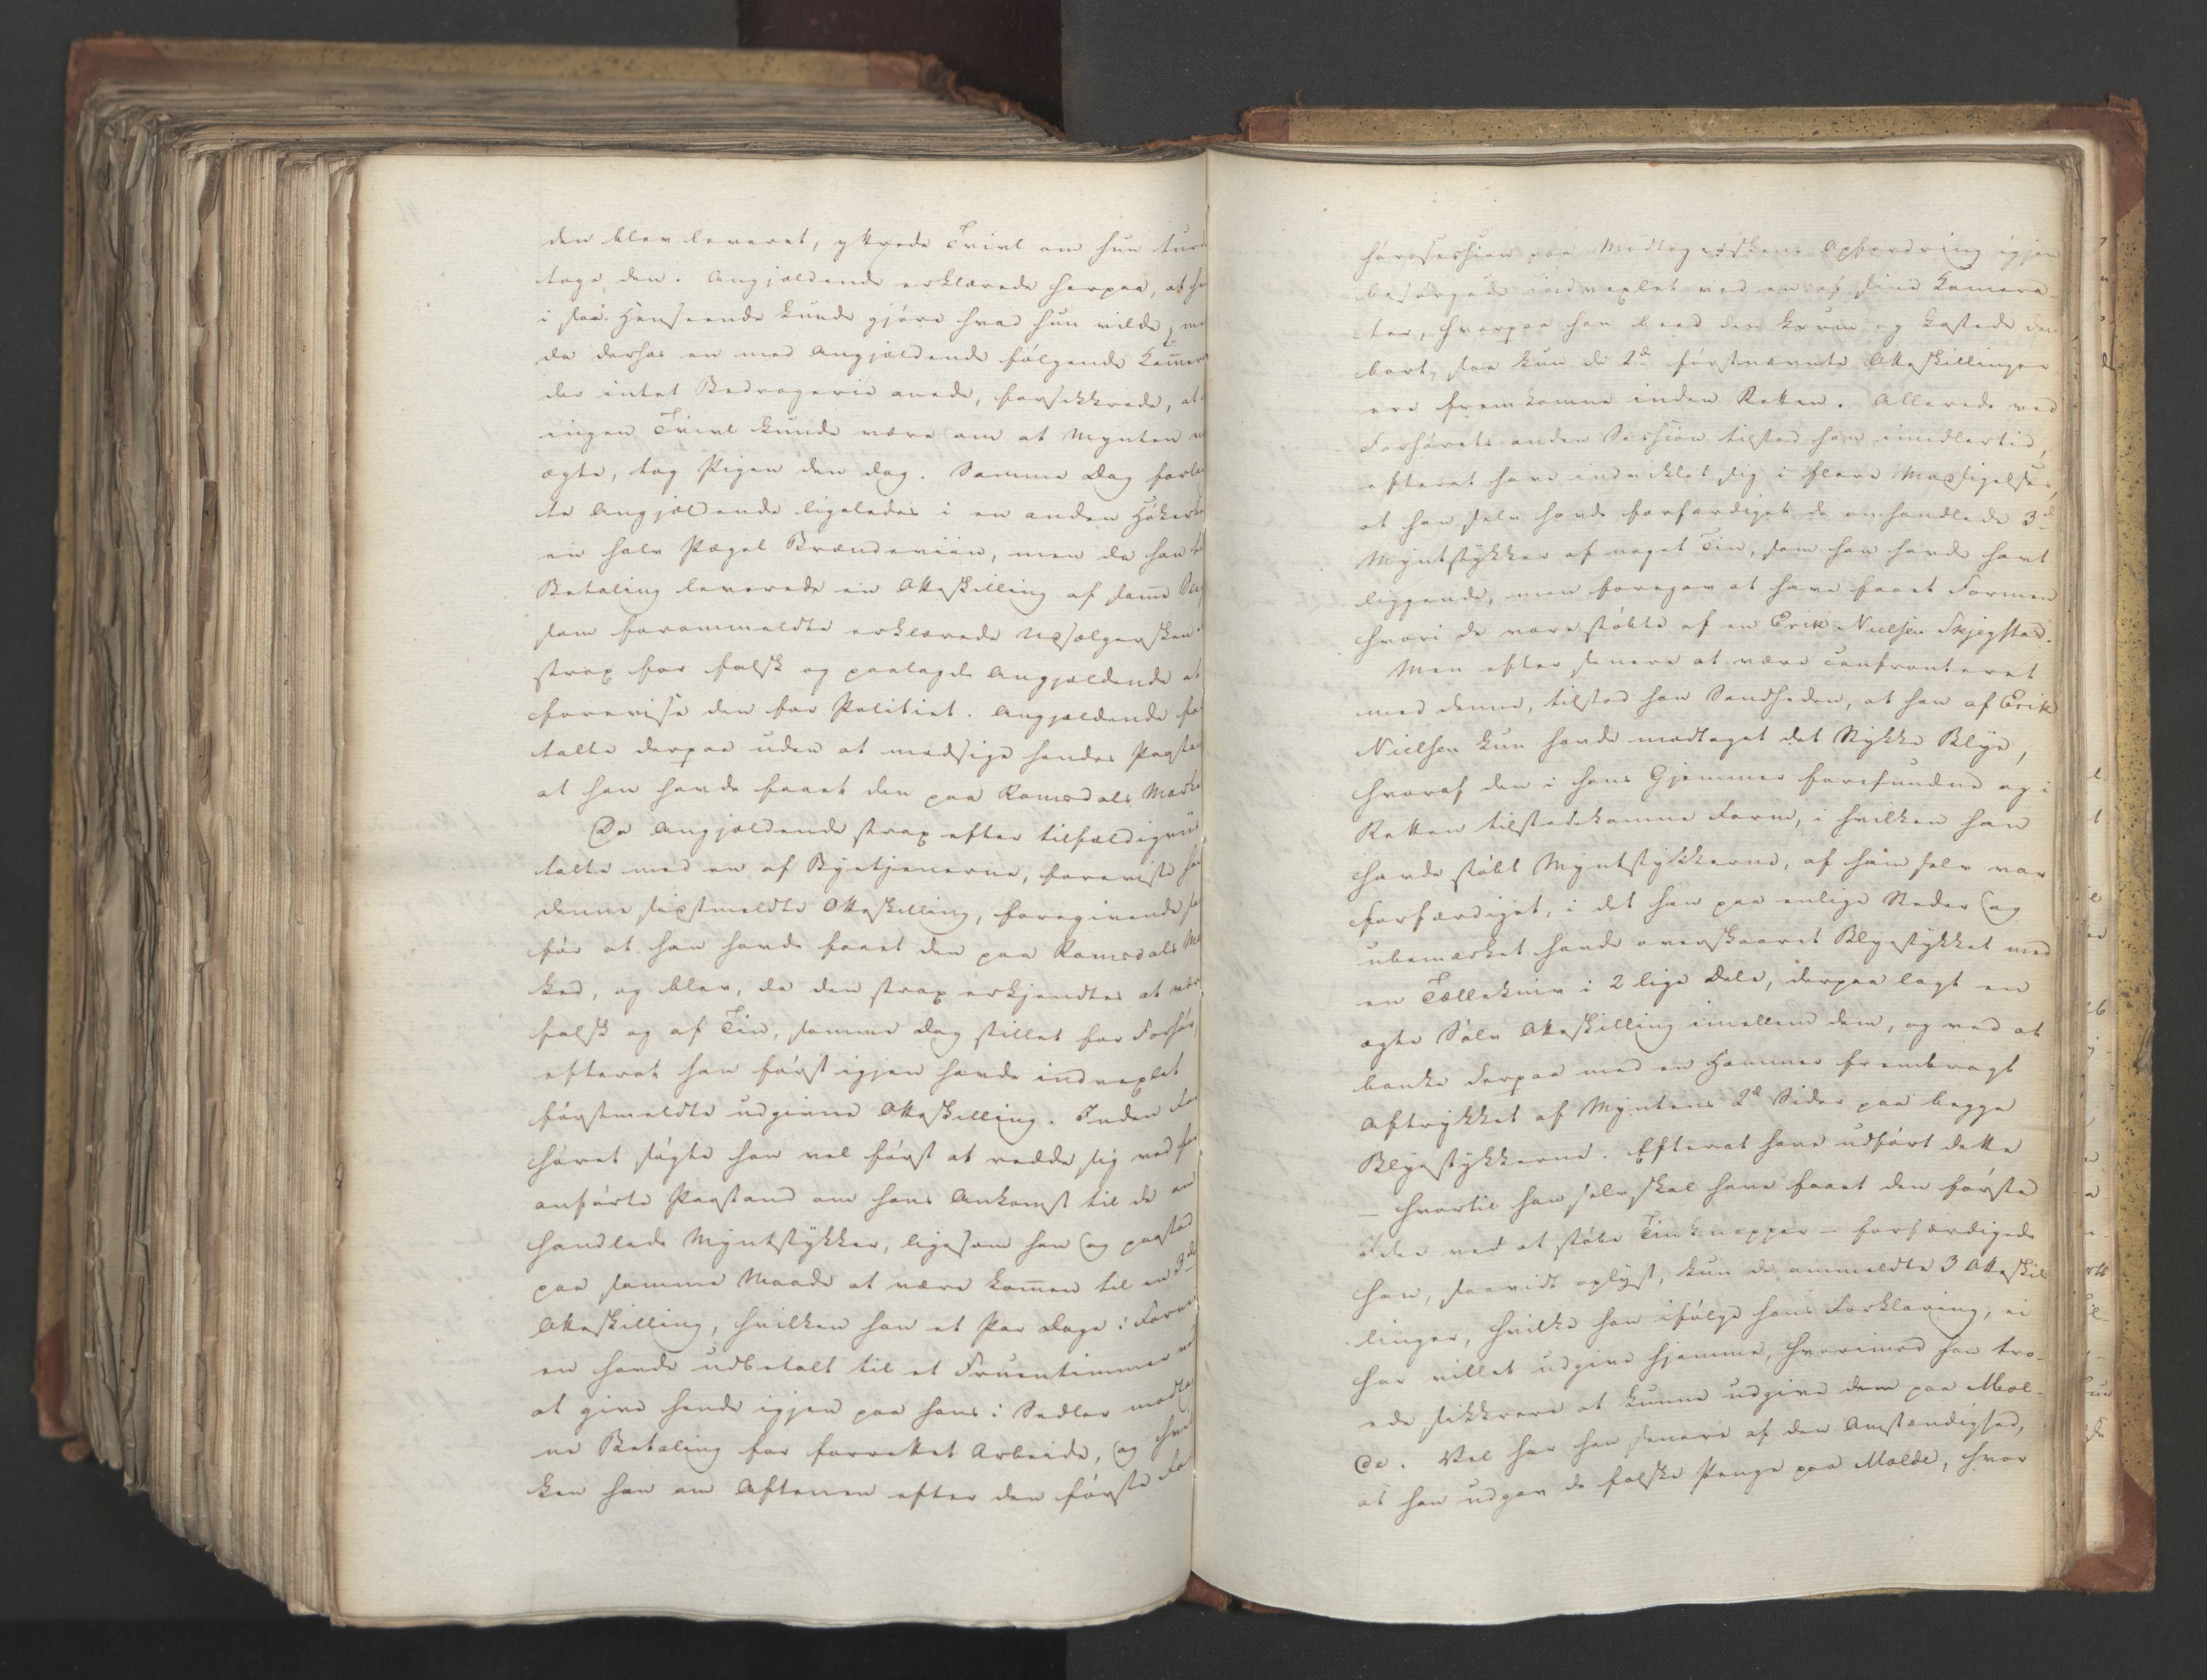 den blev leveret, yttrede Tvivl om hun turd
tage den. Angjældende erklærede herpaa, at ha
i saa Henseende kunde gjøre hvad hun vilde, me
da derhos en med Angjældende følgende Kam̅er
der intet Bedragerie anede, forsikkrede, at
ingen Tvivl kunde være om at Mynten v
ægte, tog Pigen den dog. Samme Dag forla
te Angjældende ligeledes i en anden Høker
en halv Pægel Brændeviin, men da han
Betaling leverede en Otteskilling af sam̅e
som forommeldte erklærede Udsælgersken
strax for falsk og paalagde Angjældende at
forevise den for Politiet. Angjældende
talte derpaa uden at modsige hendes Paasta
at han havde faaet den paa Romsdals Marke
Da Angjældende strax efter tilfældigvii
talte med en af Byetjenerne, foreviste ha
denne sidstmeldte Otteskilling, foregivende
før at han havde faaet den paa Romsdals Ma
ked, og blev, da den strax erkjendtes at vær
falsk og af Tin, samme Dag stillet for Forhør,
efterat han først igjen havde indvexlet
førstmeldte udgivne Otteskilling. Inden For
høret søgte han vel først at redde sig ved for
anførte Paastand om hans Ankomst til de om
handlede Myntstykker, ligesom han og paastod
paa samme Maade at være kom̅en til en 3de
Otteskilling, hvilken han et Par Dage i Forve
en havde udbetalt til et Fruentimmer ved
at give hende igjen paa hans i Sedler modta
ne Betaling for forrettet Arbeide, og hvil
ken han om Aftenen efter den første For
hørssession paa Modtagerskens Opfordring igjen
besørgede indvexlet ved en af sine Kamera-
ter, hvorpaa han beed den krum og kastede den
bort, saa kun de 2de førstnævnte Otteskillinger
ere fremkomne inden Retten. Allerede ved
Forhørets anden Session tilstod han imidlertid,
efterat have indviklet sig i flere Modsigelser,
at han selv havde forfærdiget de omhandlede 3de
Myntstykker af noget Tin, som han havde havt
liggende, men foregav at have faaet Formen
hvori de vare støbte af en Erik Nielsen Skjegstad.
Men efter senere at være confronteret
med denne, tilstod han Sandheden, at han af Erik
Nielsen kun havde modtaget det Stykke Blye,
hvoraf den i hans Gjemmer forefundne og i
Retten tilstedekomne Form, i hvilken han
havde støbt Myntstykkerne, af ham selv var
forfærdiget, i det han paa enlige Steder og
ubemærket havde overskaaret Blyestykket med
en Tælleknív i 2 lige Dele, derpaa lagt en
ægte Sølv Otteskilling imellem dem, og ved at
banke derpaa med en Hammer frembragt
Aftrykket af Myntens 2de Sider paa begge
Blyestykkerne. Efterat have udført dette
– hvortil han selv skal have faaet den første
Idee ved at støbe Tinknapper – forfærdigede
han, saavidt oplyst, kun de ommeldte 3 Otteskil
linger, hvilke han ifølge hans Forklaring, ei
har villet udgive hjemme, hvorimod han tro-
ede sikkrere at kunne udgive dem paa Mol-
de. Vel har han senere af den Omstændighed,
at han udgav de falske Penge paa Molde, hvor